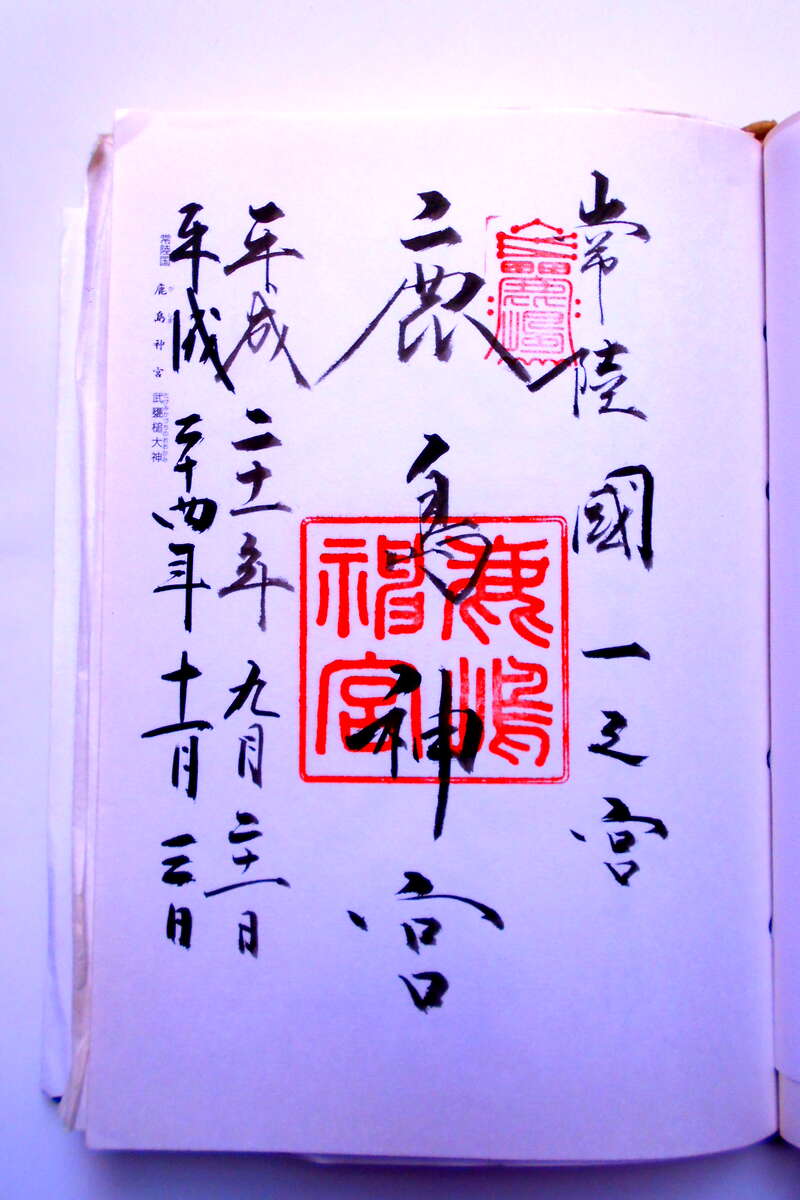 常陸國一之宮
鹿島神宮
鹿嶋神宮
平成二十一年九月二十一日
平成二十四年十一月三日
常陸国 鹿島神宮 武甕槌大神